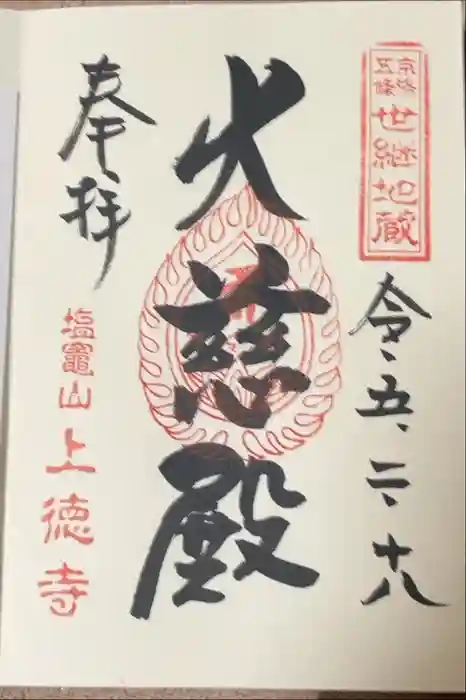 京都五條
世継地蔵
令、五、二、十八
大慈殿
奉拝
塩竈山
上徳寺